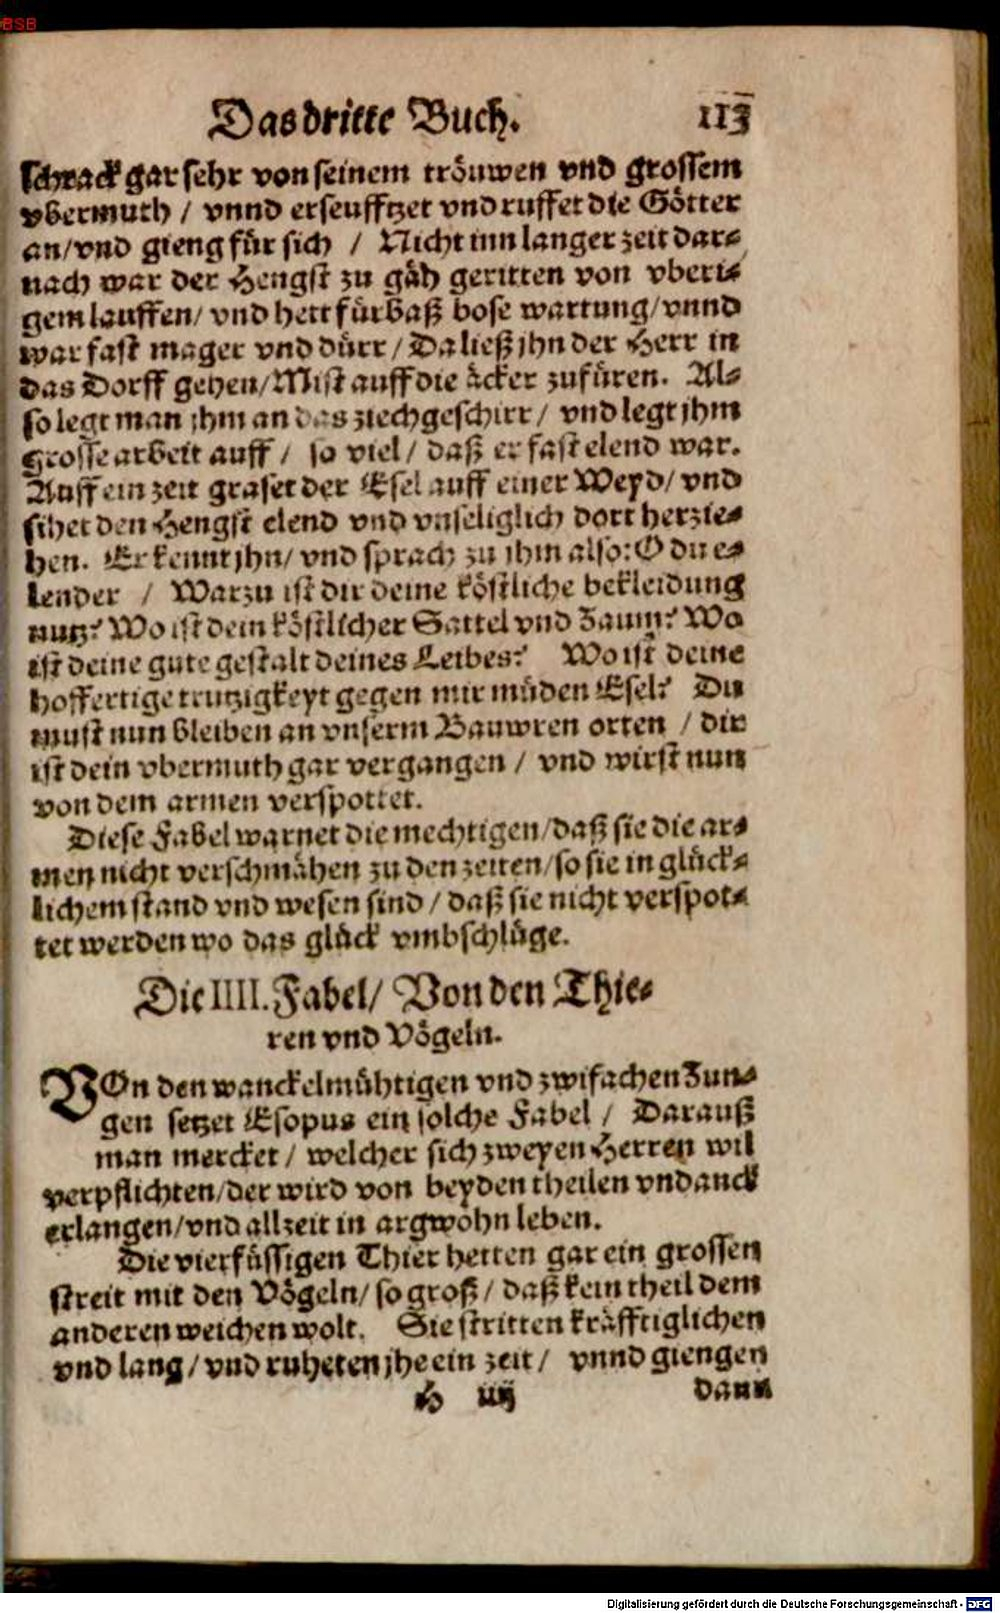 BSB
Das dritte Buch. 113
schrack gar sehr von seinem tröuwen vnd grossem
vbermuth / vnnd erseufftzet vnd ruffet die Götter
an/vnd gieng für sich / Nicht inn langer zeit dar-
nach war der Hengst zu gäh geritten von vberi-
gem lauffen/ vnd hett fürbaß bose wartung/vnnd
war fast mager vnd dürr/ Da ließ jhn der Herr in
das Dorff gehen/Mist auff die äcker zufüren. Al-
so legt man jhm an das ziechgeschirr/ vnd legt jhm
grosse arbeit auff / so viel/ daß er fast elend war.
Auff ein zeit graset der Esel auff einer Weyd/ vnd
sihet den Hengst elend vnd vnseliglich dort herzie-
hen. Er kennt jhn/ vnd sprach zu jhm also: O du e-
lender / Warzu ist dir deine köstliche bekleidung
nutz? Wo ist dein köstlicher Sattel vnd Zaum? Wo
ist deine gute gestalt deines Leibes? Wo ist deine
hoffertige trutzigkeyt gegen mir müden Esel? Du
must nun bleiben an vnserm Bauwren orten / dir
ist dein vbermuth gar vergangen / vnd wirst nun
von dem armen verspottet.
Diese Fabel warnet die mechtigen/daß sie die ar-
men nicht verschmähen zu den zeiten/so sie in glück-
lichem stand vnd wesen sind / daß sie nicht verspot-
tet werden wo das glück vmbschlüge.
Die IIII. Fabel/ Von den Thie-
ren vnd Vögeln.
VOn den wanckelmühtigen vnd zwifachen Zun-
gen setzet Esopus ein solche Fabel / Darauß
man mercket / welcher sich zweyen Herren wil
verpflichten/der wird von beyden theilen vndanck
erlangen/vnd allzeit in argwohn leben.
Die vierfüssigen Thier hetten gar ein grossen
streit mit den Vögeln/ so groß / daß kein theil dem
anderen weichen wolt. Sie stritten kräfftiglichen
vnd lang/ vnd ruheten jhe ein zeit/ vnnd giengen
H iiij dann
Digitalisierung gefördert durch die Deutsche Forschungsgemeinschaft - DFG